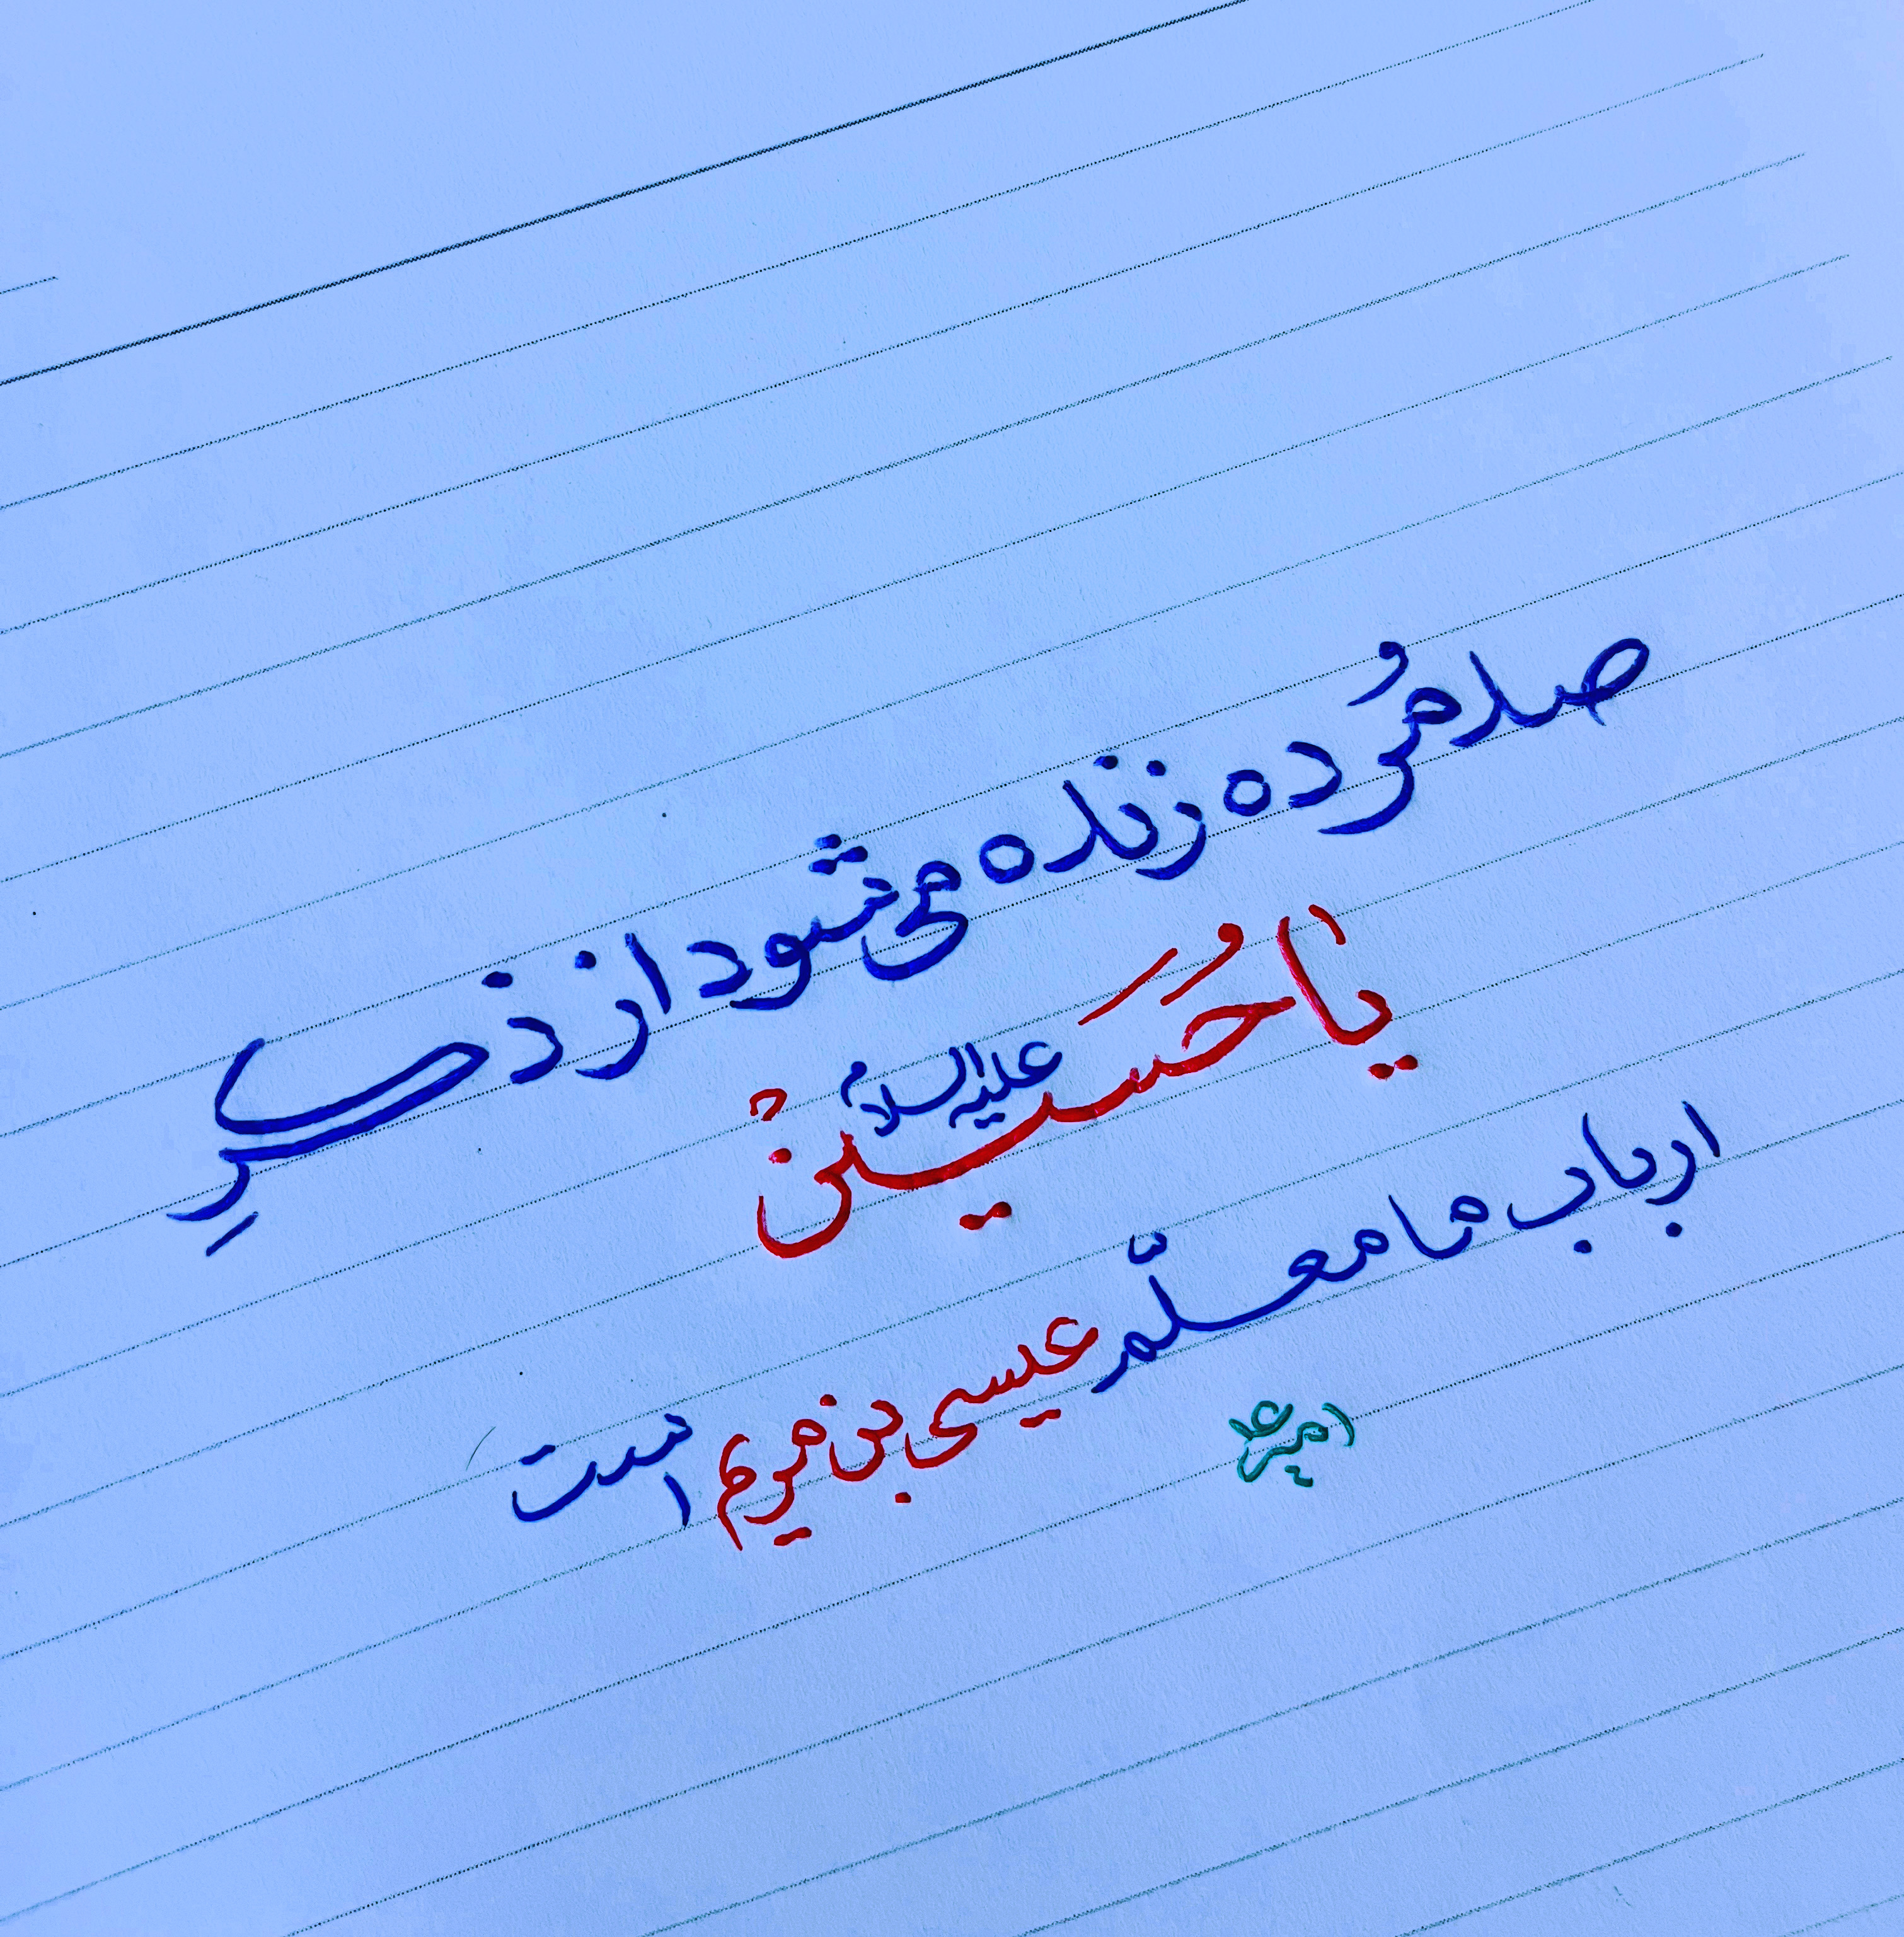 صد مُرده زنده می شود از ذکرِ
یا حُسَین علیه السلام
ارباب ما معلّم عیسی بن مریم است